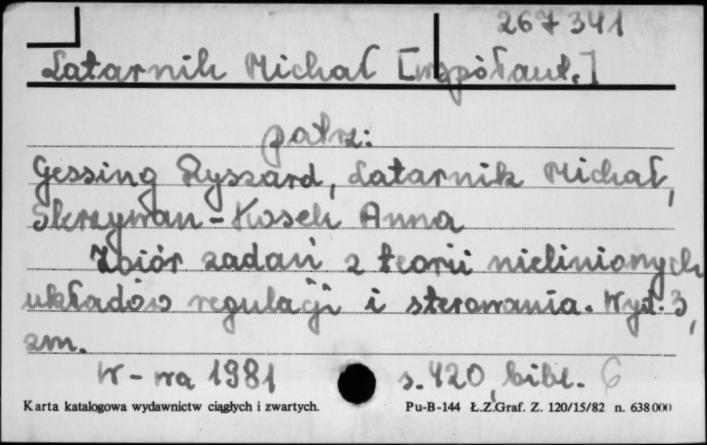 267341
Latarnik Michał [współaut.]
patrz:
Gessing Ryszard, Latarnik Michał,
Skrzywan-Kosek Anna
Zbiór zadań z teorii nieliniowych
układów regulacji i sterowania. Wyd. 3,
zm.
W-wa 1981 s. 420, bibl. 6
Karta katalogowa wydawnictw ciągłych i zwartych. Pu-B-144 Ł.Z.Graf. Z. 120/15/82 n. 638 000